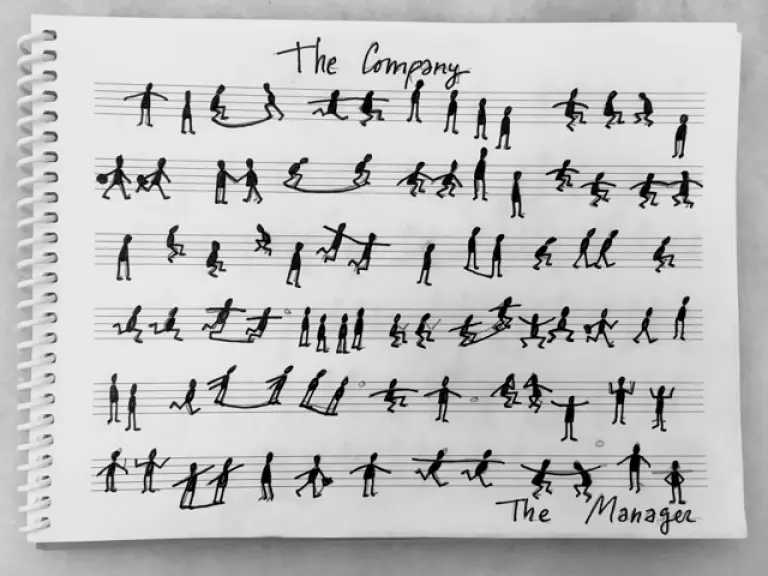 The Company
The Manager